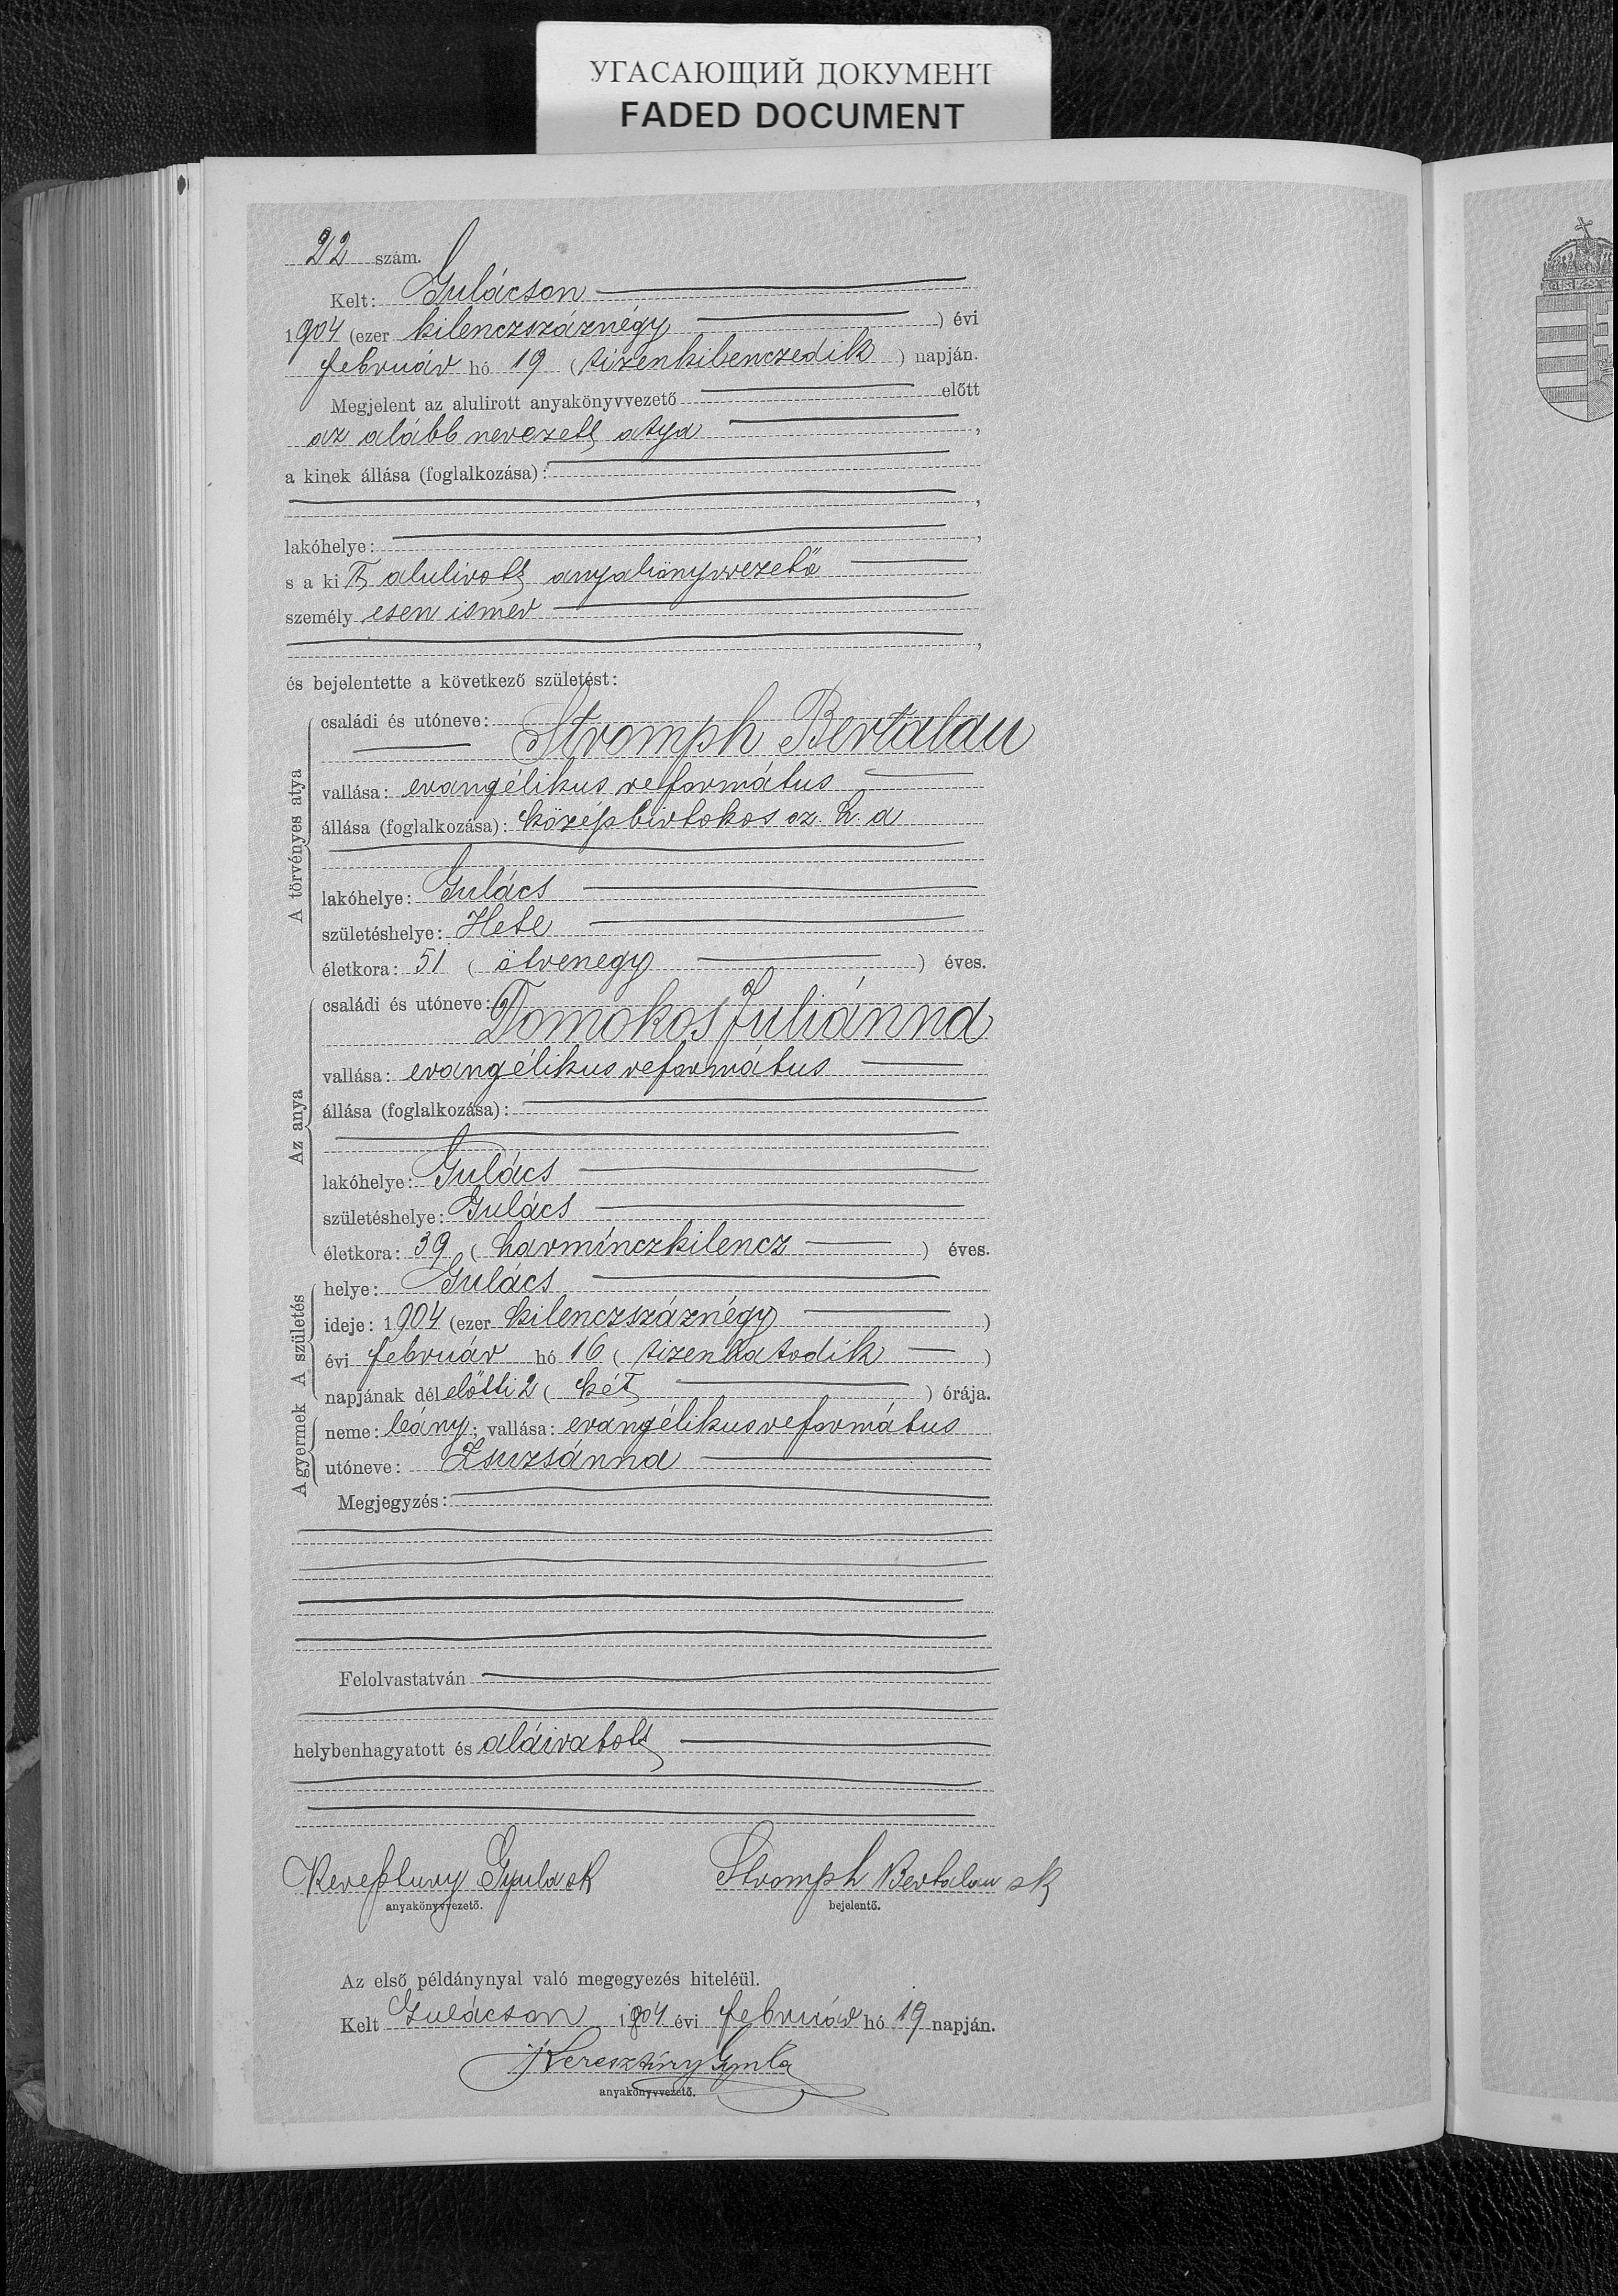 УГАСАЮЩИЙ ДОКУМЕНТ
FADED DOCUMENT
22 szám.
Kelt: Gulácson
1904 (ezer kilenczszáznégy) évi
február hó 19 (tizenkilenczedik) napján.
Megjelent az alulirott anyakönyvvezető előtt
az alább nevezett atya,
a kinek állása (foglalkozása):
,
lakóhelye: ,
s a kit alulirott anyakönyvvezető
személyesen ismer
,
és bejelentette a következő születést:
A törvényes atya
családi és utóneve: Stromph Bertalan
vallása: evangélikus református
állása (foglalkozása): középbirtokos
lakóhelye: Gulács
születéshelye: Hete
életkora: 51 (ötvenegy) éves.
Az anya
családi és utóneve: Domokos Juliánna
vallása: evangélikus református
állása (foglalkozása):
lakóhelye: Gulács
születéshelye: Gulács
életkora: 39 (harminczkilencz) éves.
A születés
helye: Gulács
ideje: 1904 (ezer kilenczszáznégy)
évi február hó 16 (tizenhatodik)
napjának délelőtti 2 (két) órája.
A gyermek
neme: leány; vallása: evangélikus református
utóneve: Zsuzsánna
Megjegyzés:
Felolvastatván
helybenhagyatott és aláiratott
Gyula sk Stromph Bertalan sk
anyakönyvvezető. bejelentő.
Az első példánynyal való megegyezés hiteléül.
Kelt Gulácson 1904 évi február hó 19 napján.
Keresztúry Gyula
anyakönyvvezető.